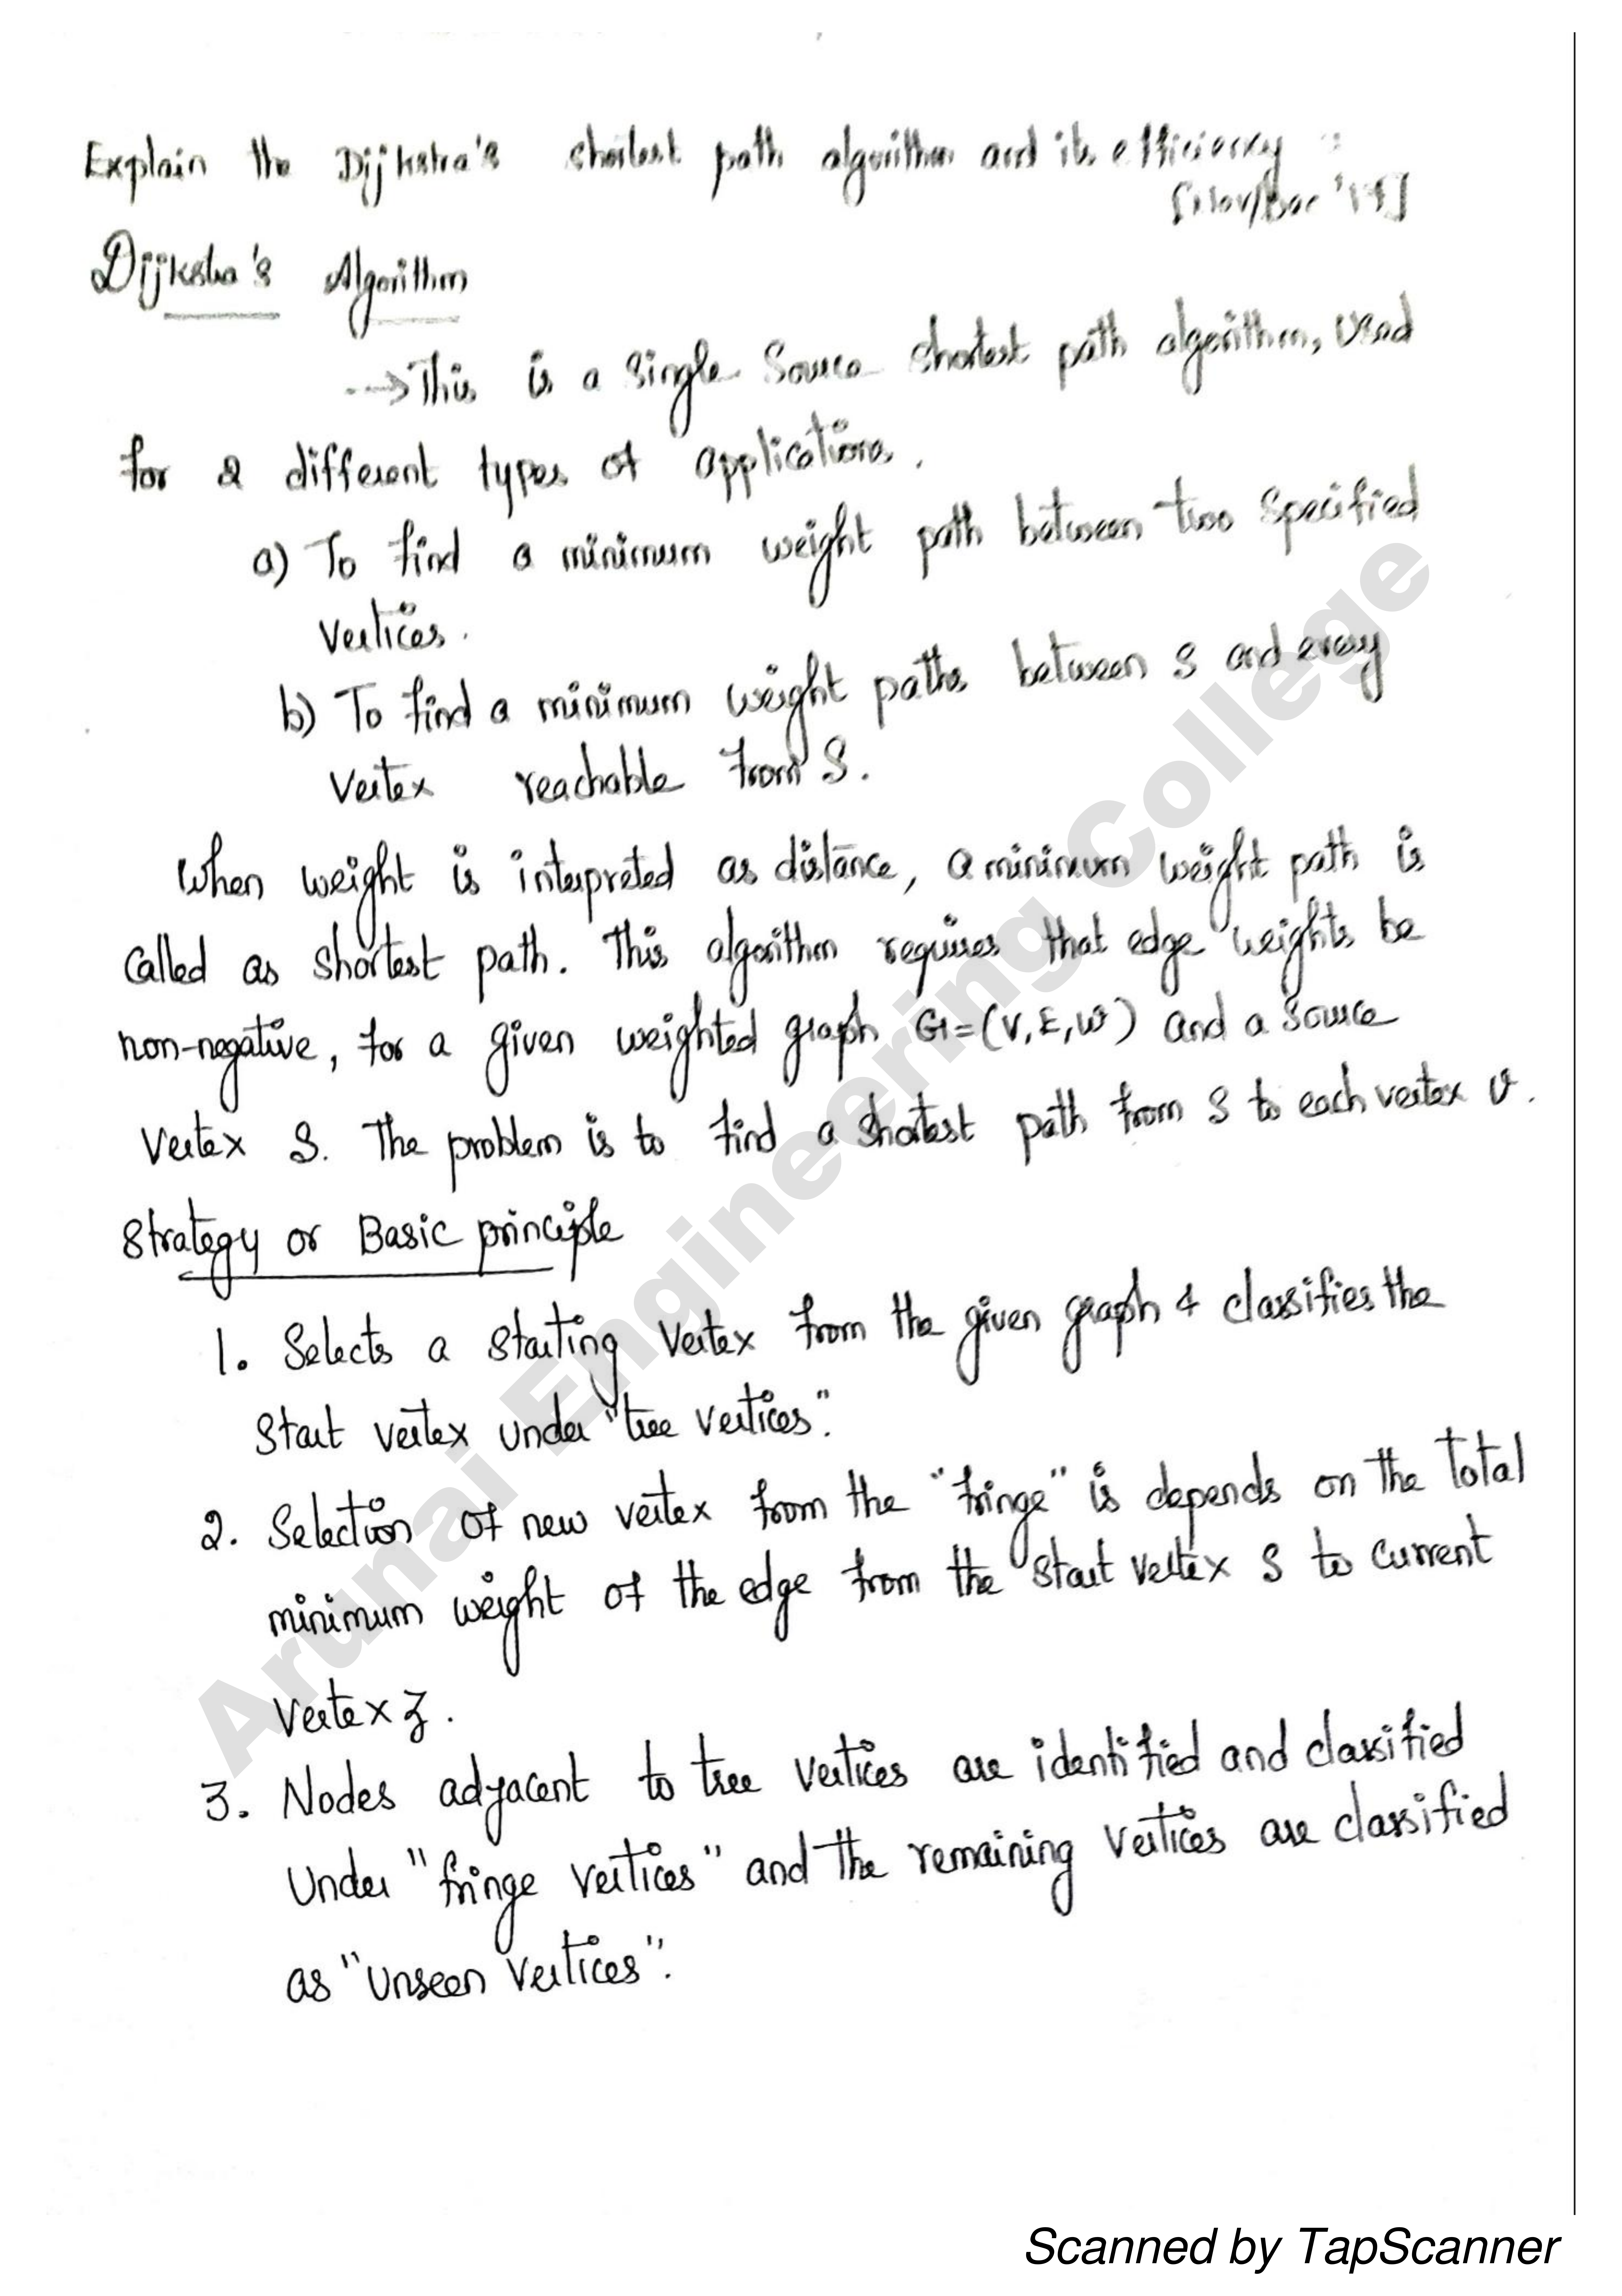 Explain the Dijkstra's shortest path algorithm and its efficiency
[Nov/Dec
Dijksha's Algorithm
--→This is a single Source shortest path algorithm, used
for 2 different types of applications.
a) To find a minimum weight path between two specified
vertices.
b) To find a minimum weight paths between S and every
vertex reachable from S.
When weight is interpreted as distance, a minimum weight path is
called as shortest path. This algorithm requires that edge weights be
non-negative, for a given weighted graph G=(V,E,W) and a source
vertex S. The problem is to find a shortest path from S to each vertex v.
Strategy or Basic principle
1. Selects a starting vertex from the given graph & classifies the
start vertex under "tree vertices".
2. Selection of new vertex from the "fringe" is depends on the total
minimum weight of the edge from the start vertex S to current
vertex z.
3. Nodes adjacent to tree vertices are identified and classified
under "fringe vertices" and the remaining vertices are classified
as "unseen vertices".
Arunai Engineering College
Scanned by TapScanner